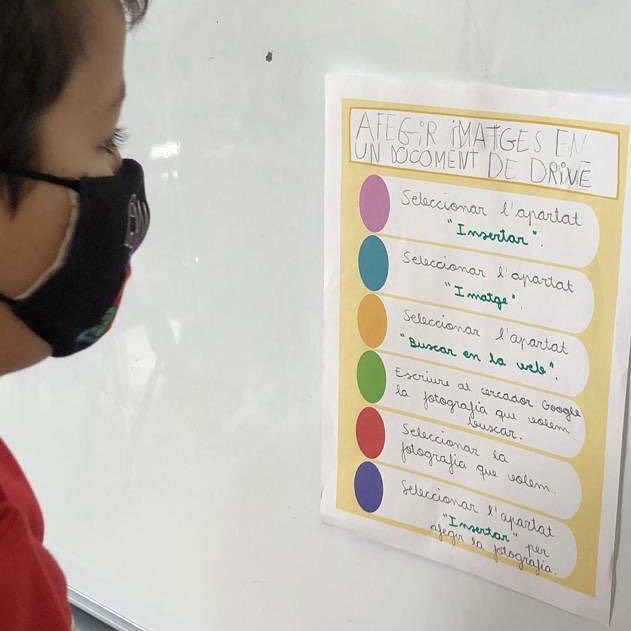 AFEGIR IMATGES EN
UN DOCOMENT DE DRIVE
Seleccionar l'apartat
"Insertar".
Seleccionar l'apartat
"Imatge".
Seleccionar l'apartat
"Buscar en la web".
Escriure al cercador Google
la fotografia que volem
buscar.
Seleccionar la
fotografia que volem.
Seleccionar l'apartat
"Insertar" per
afegir la fotografia.